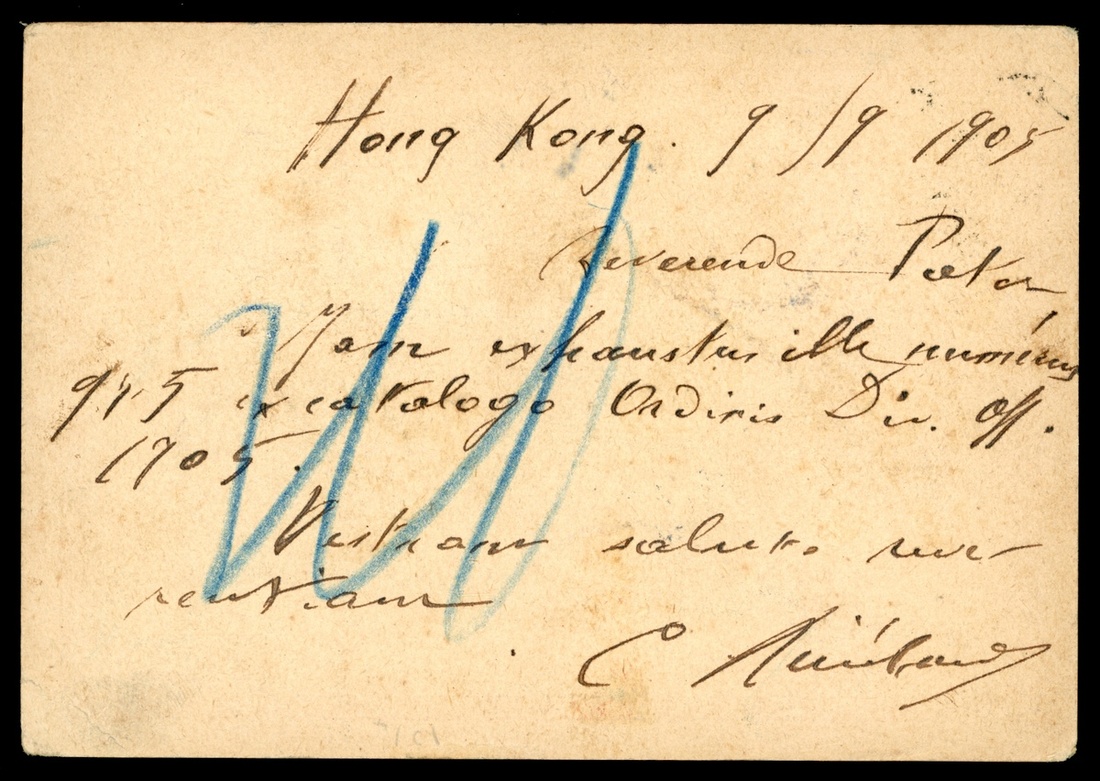 Hong Kong. 9/9 1905
Reverende Pater,
Jam exhaustus ille numerus
945 ex catalogo Ordinis Div. Off.
1905.
Vestram saluto reve-
rentiam
C